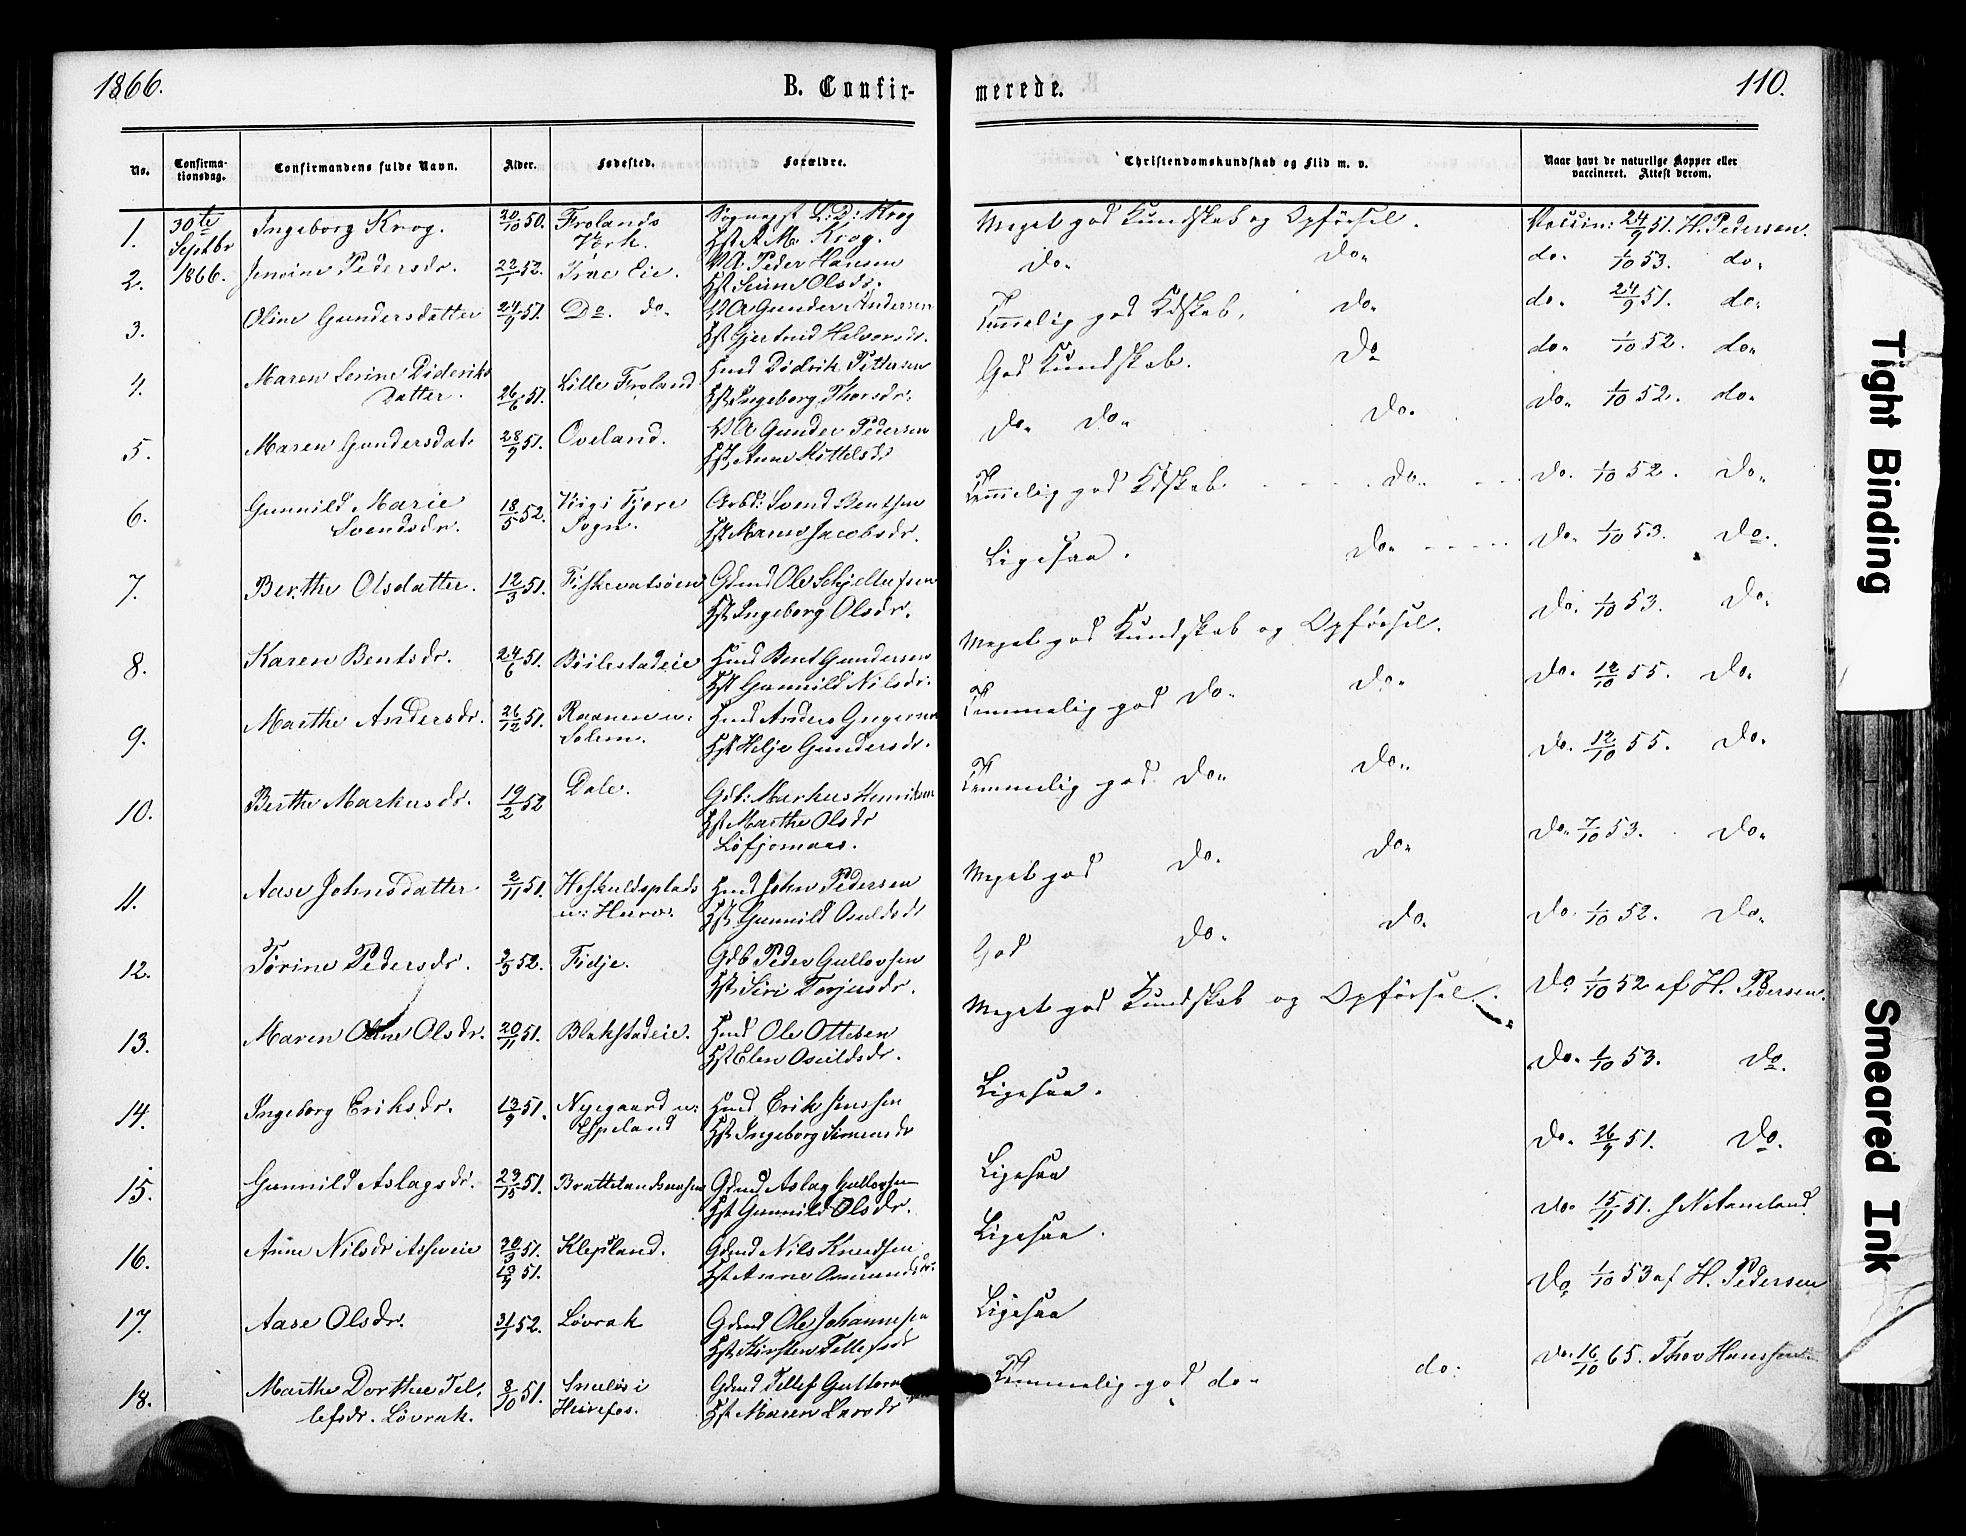 1866.
B. Confir-
merede.
110.
No.
Confirma-
tionsdag.
Confirmandens fulde Navn.
Alder.
Fødested.
Forældre.
Christendomskundskab og Flid m. v.
Naar havt de naturlige Kopper eller
vaccineret. Attest derom.
1. 30te Septbr 1866. Ingeborg Krog. 20/10 50. Frolands Værk. Sognepst D: D: Krog
Hst A. M. Krog. Meget god Kundskab og Opførsel. Vaccin: 24/9 51. H. Pedersen.
2. Jensine Pedersdr. 22/1 52. Eie. Peder Hansen
Hst Olsdr. do do do 1/10 53. do
3. Oline Gundersdatter 24/9 51. Do do Gunder Andersen
Hst Gjertrud Halvorsdr. Temmelig god Kdskab. do do 24/9 51. do
4. Maren Serine Dideriks
Datter. 26/6 51. Lille Froland Hmd Didrik Pettersen
Hst Ingeborg Thorsdr. God Kundskab. do do 1/10 52. do
5. Maren Gundersdat. 28/9 51. Oveland. Gunder Pedersen
Hst Anne Kittelsdr do do do do 1/10 52. do
6. Gunnild Marie
Svendsdr. 18/5 52. Vegi Fjere
Sogn. Arbd: Svend Bentsen
Hst Maren Jacobsdr. Temmelig god Kdskab do do 1/10 52. do
7. Berthe Olsdatter. 12/3 51. Fiskevatsøen Gdmd Ole Schjellufsen
Hst Ingeborg Olsdr. Ligesaa. do do 1/10 53. do.
8. Karen Bentsdr. 24/6 51. Bøilestadeie Hmd Bent Gundersen
Hst Gunnild Nilsdr. Meget god Kundskab og Opførsel. do 1/10 53. do
9. Marthe Andersdr. 26/12 51. Raanen u:
Solem. Hmd Anders
Hst Helje Gundersdr. Temmelig god do do do 12/10 55. do
10. Berthe Markusdr. 19/2 52 Dale. Gdb: Markus Henriksen
Hst Marthe Olsdr
Løfjomaas. Temmelig god do do do 12/10 55. do
11. Aase Johnsdatter 2/11 51. Hoskuldsplads
u: Hurv. Hmd John Pedersen
Hst Gunnild Osuldsdr Meget god do do do 7/10 53. do
12. Tørine Pedersdr. 2/5 52. Fidje. Gdb Peder Gullovsen
Hst Siri Torjusdr. God do do do 1/10 52. do
13. Maren Oline Olsdr. 20/11 51. Blakstadeie. Hmd Ole Ottesen
Hst Elen Osuldsdr. Meget god Kundskab og Opførsel. do 1/10 52 af H. Pedersen.
14. Ingeborg Eriksdr. 13/9 51. Nyegaard u:
Espeland Hmd Erik Jenssen
Hst Ingeborg Simensdr Ligesaa. do 1/10 53. do.
15. Gunnild Aslagsdr. 51. Brattelandsaasen Gdmd Aslag Gullovsen
Hst Gunnild Olsdr. Ligesaa do 26/9 51. do.
16. Anne Nilsdr Askveie 30/3 51.
13/9 51. Klepland. Gdmd Nils Knudsen
Hst Anne Omundsdr. Ligesaa. do 15/11 51.
17. Aase Olsdr. 31/1 52. Løvrak Gdmd Ole Johannesen
Hst Kirsten Tellefsdr Ligesaa do 1/10 53 af H. Pedersen
18. Marthe Dorthee Tel-
lefsdr. Løvrak. 8/10 51. Smeløs i
Heirefos. Gdmd Tellef
Hst Maren Larsdr Temmelig god do do do 16/10 65. Thov Hanssen
Tight Binding
Smeared Ink